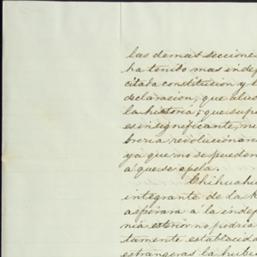 las demas seccione
ha tenido mas indep
citada constitucion y l
declaracion, que aluc
la historia; que supu
es insignificante, ni
breria revolucionar
ya que no se pueden
á que se apela.
Chihuahu
integrante de la R
aspirara á la indep
nia esterior no podria
tamente establecida
estrangeras la hubie